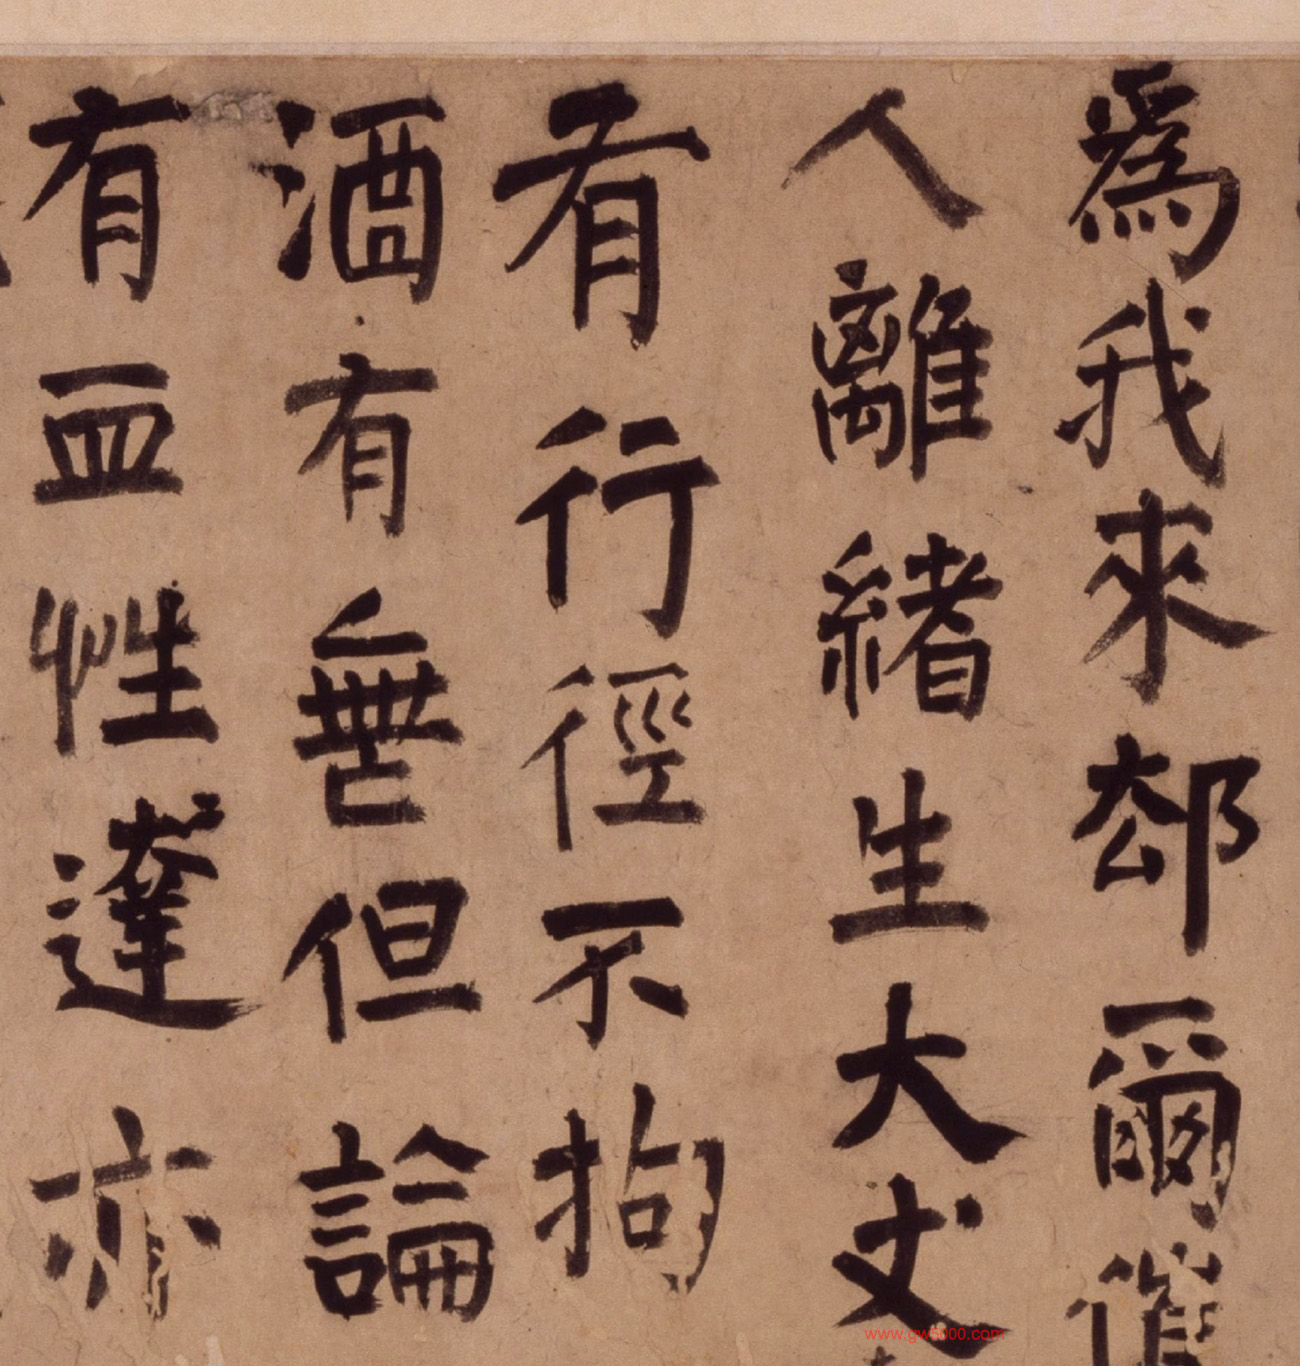 為我來却爾催
人離緒生大丈
有行徑不拘
酒有無但論
有血性達亦
www.gw5000.com